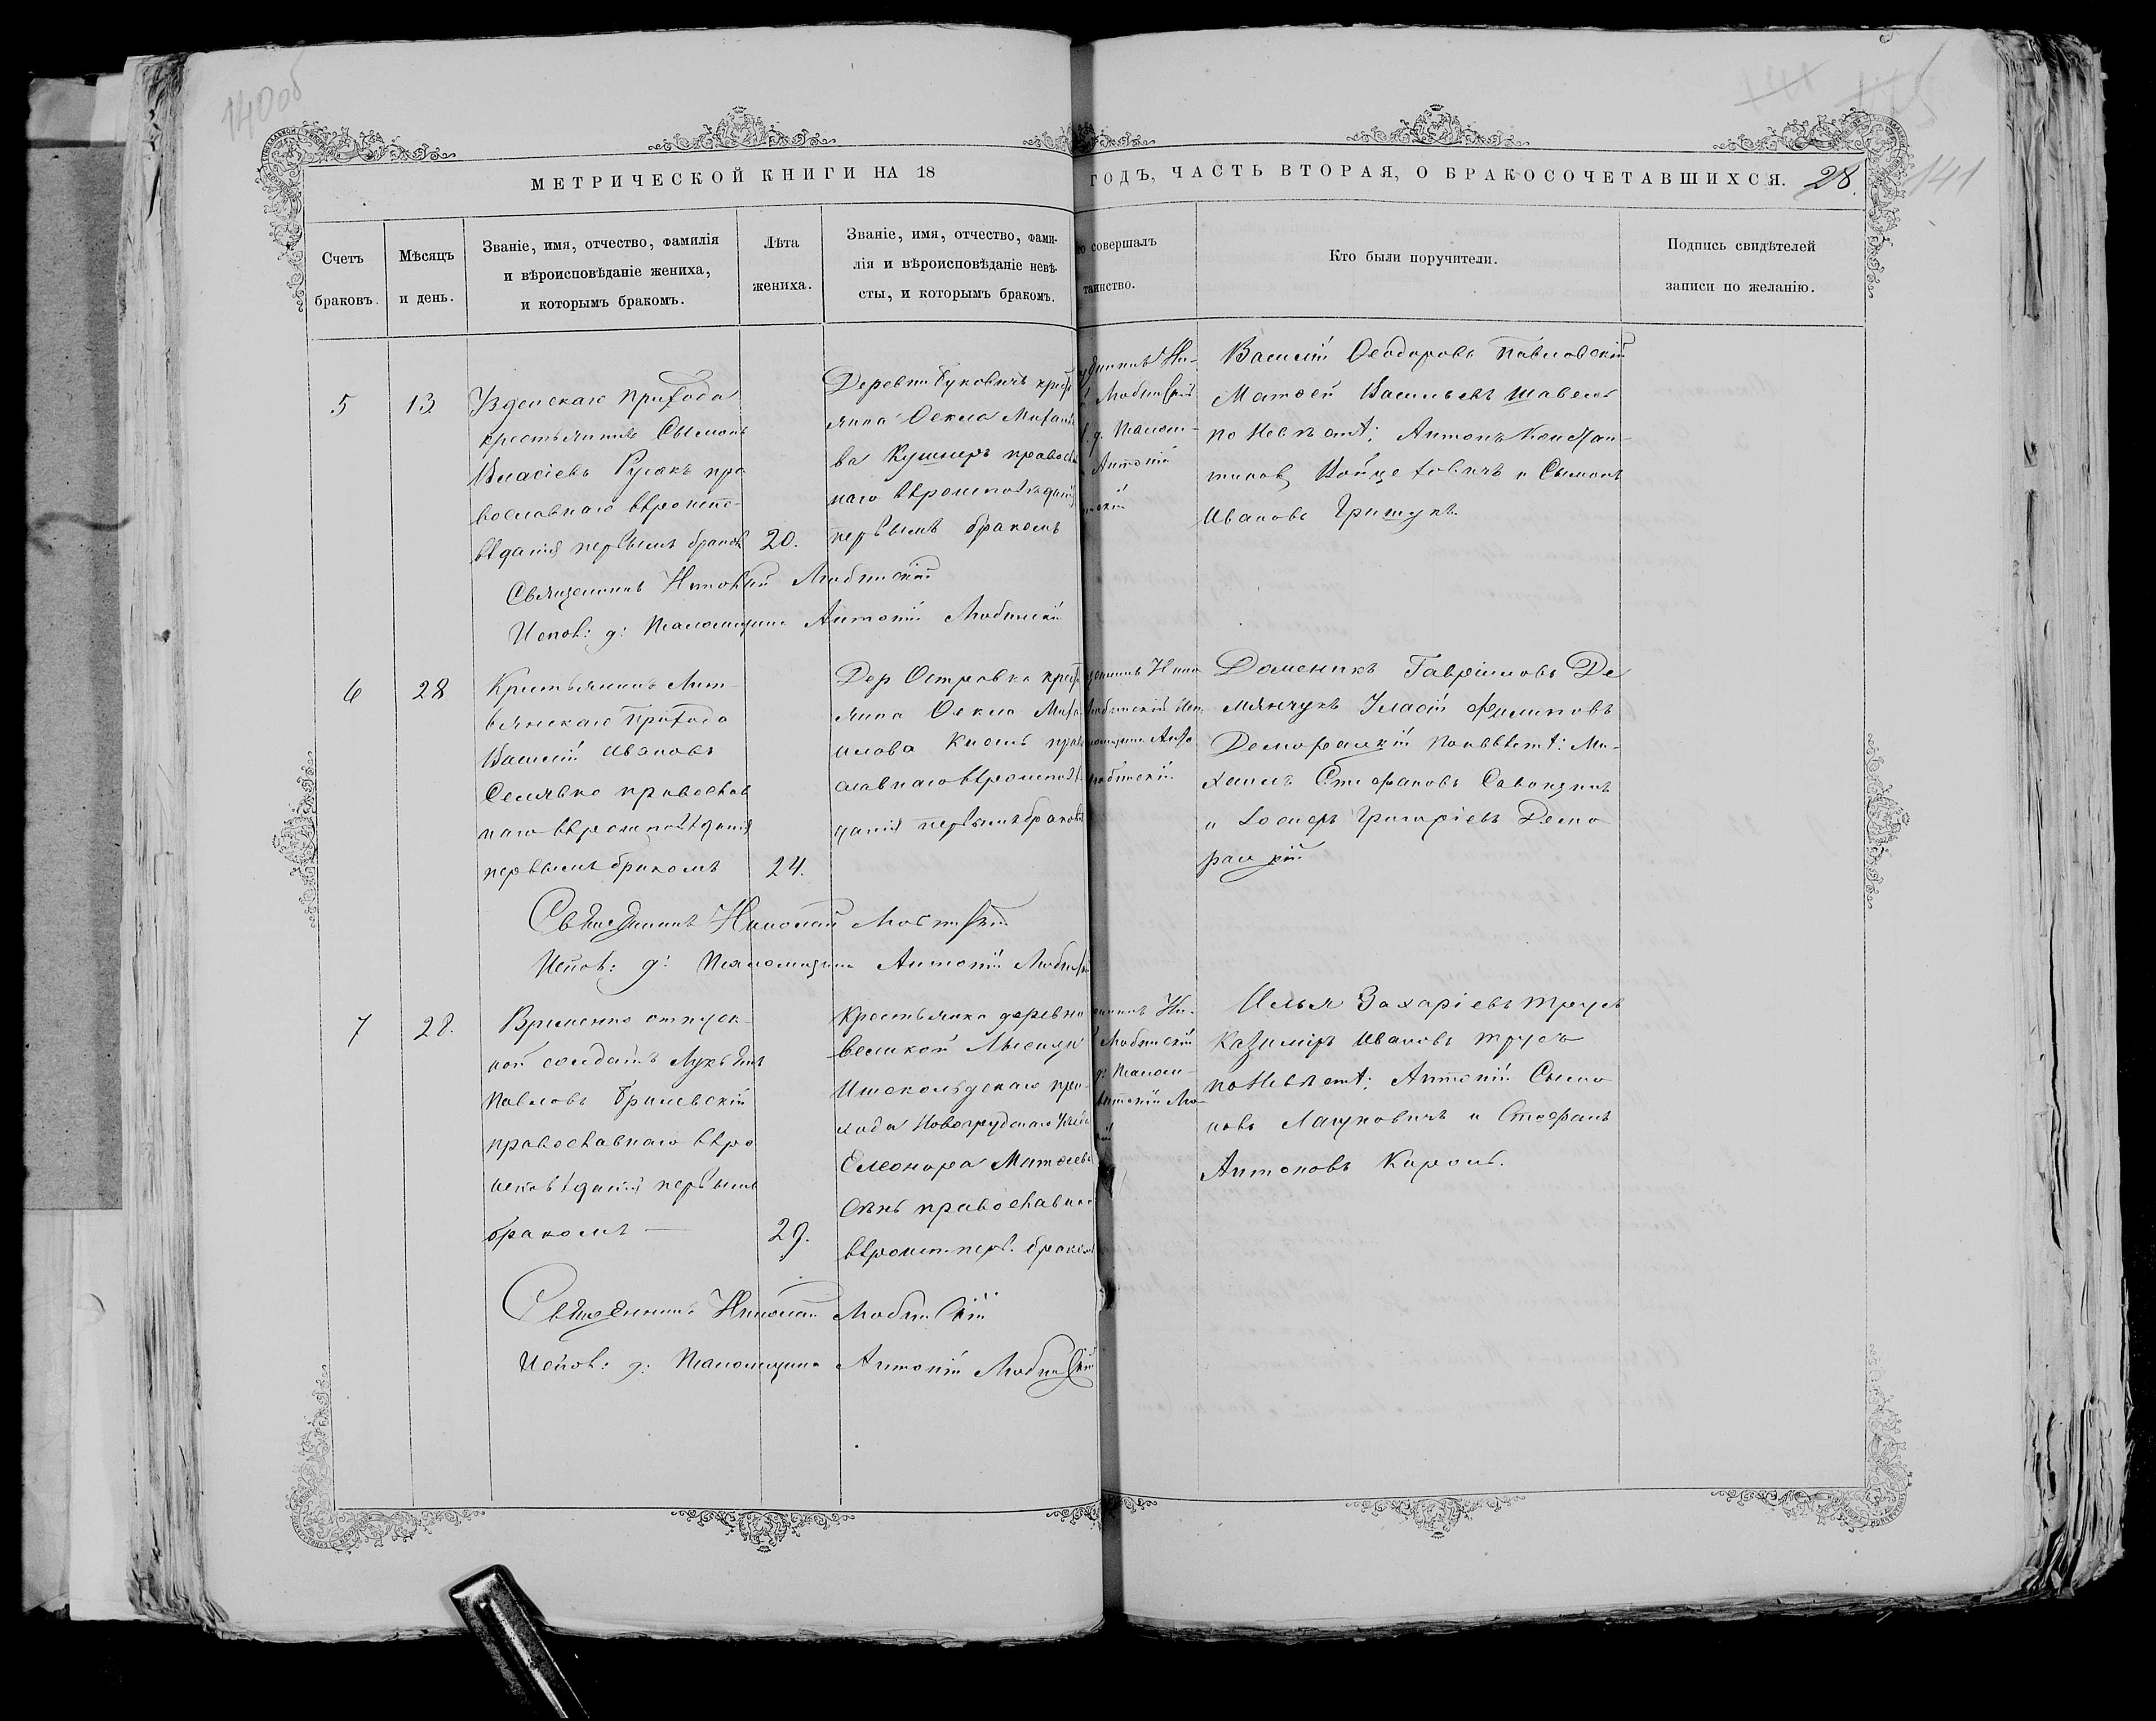 140об
141
МЕТРИЧЕСКОЙ КНИГИ НА 18
ГОДЪ, ЧАСТЬ ВТОРАЯ, О БРАКОСОЧЕТАВШИХСЯ. 28.
Счетъ
браковъ.
Мѣсяцъ
и день.
Званіе, имя, отчество, фамилія
и вѣроисповѣданіе жениха,
и которымъ бракомъ.
Лѣта
жениха.
Званіе, имя, отчество, фами-
лія и вѣроисповѣданіе невѣ-
сты, и которымъ бракомъ.
совершалъ
таинство.
Кто были поручители.
Подпись свидѣтелей
записи по желанію.
5
13
Узденскаго Прихода
крестьянинъ Сымонъ
Власіевъ Русакъ пра
вославнаго вѣроиспо-
вѣданія первымъ бракомъ
20.
Деревни Буковичъ крест
янка Ѳекла Михаило
ва Кушнеръ правосла
наго вѣроисповѣданія
первымъ бракомъ
Ни-
Любинскій
д. Палом-
Антоній
Василій Ѳеодоровъ Павловскій
Матѳей Васильевъ Шавель
по Невѣстѣ: Антонъ Констан-
тиновъ Войцеховичъ и Сымонъ
Ивановъ Грицукъ.
Священникъ Николай Любинскій
Испов: д: Паломщика Антоній Любинскій
6
28
Крестьянинъ Лит-
вянскаго Прихода
Василій Ивановъ
Селявко православ
наго вѣроисповѣданія
первымъ бракомъ
24.
Дер Островка крест
янка Ѳекла Миха
илова Кисель прав
славнаго вѣроисповѣ
данія первымъ бракомъ
Нико
Любинскій Исп
Анто
Любинскій
Доменикъ Гавріиловъ Де
мянчукъ Іласій Филиповъ
Поневѣстѣ: Ми-
хаилъ Стефановъ
и Іосифъ Григоріевъ
Священникъ Николай Любинскій
Испов: д: Паломщика Антоній Любинскій
7
28.
Временно отпуск-
ной солдатъ Лукьянъ
Павловъ Брилевскій
православнаго вѣро
исповѣданія первымъ
бракомъ —
29.
Крестьянка деревни
великой Лысицы
Ишкольдскаго при-
хода Новогрудскаго уѣзда
Елеонора Матѳева
православна
вѣроисп. перв. бракомъ
Ни-
Любинскій
д: Палом-
Антоній Лю-
Илья Захаріевъ Трусъ
Казиміръ Ивановъ Трусъ
поНевѣстѣ: Антоній Сымо
новъ Лацуновичъ и Стефанъ
Антоновъ Король.
Священникъ Николай Любинскій
Испов: д: Паломщика Антоній Любинскій